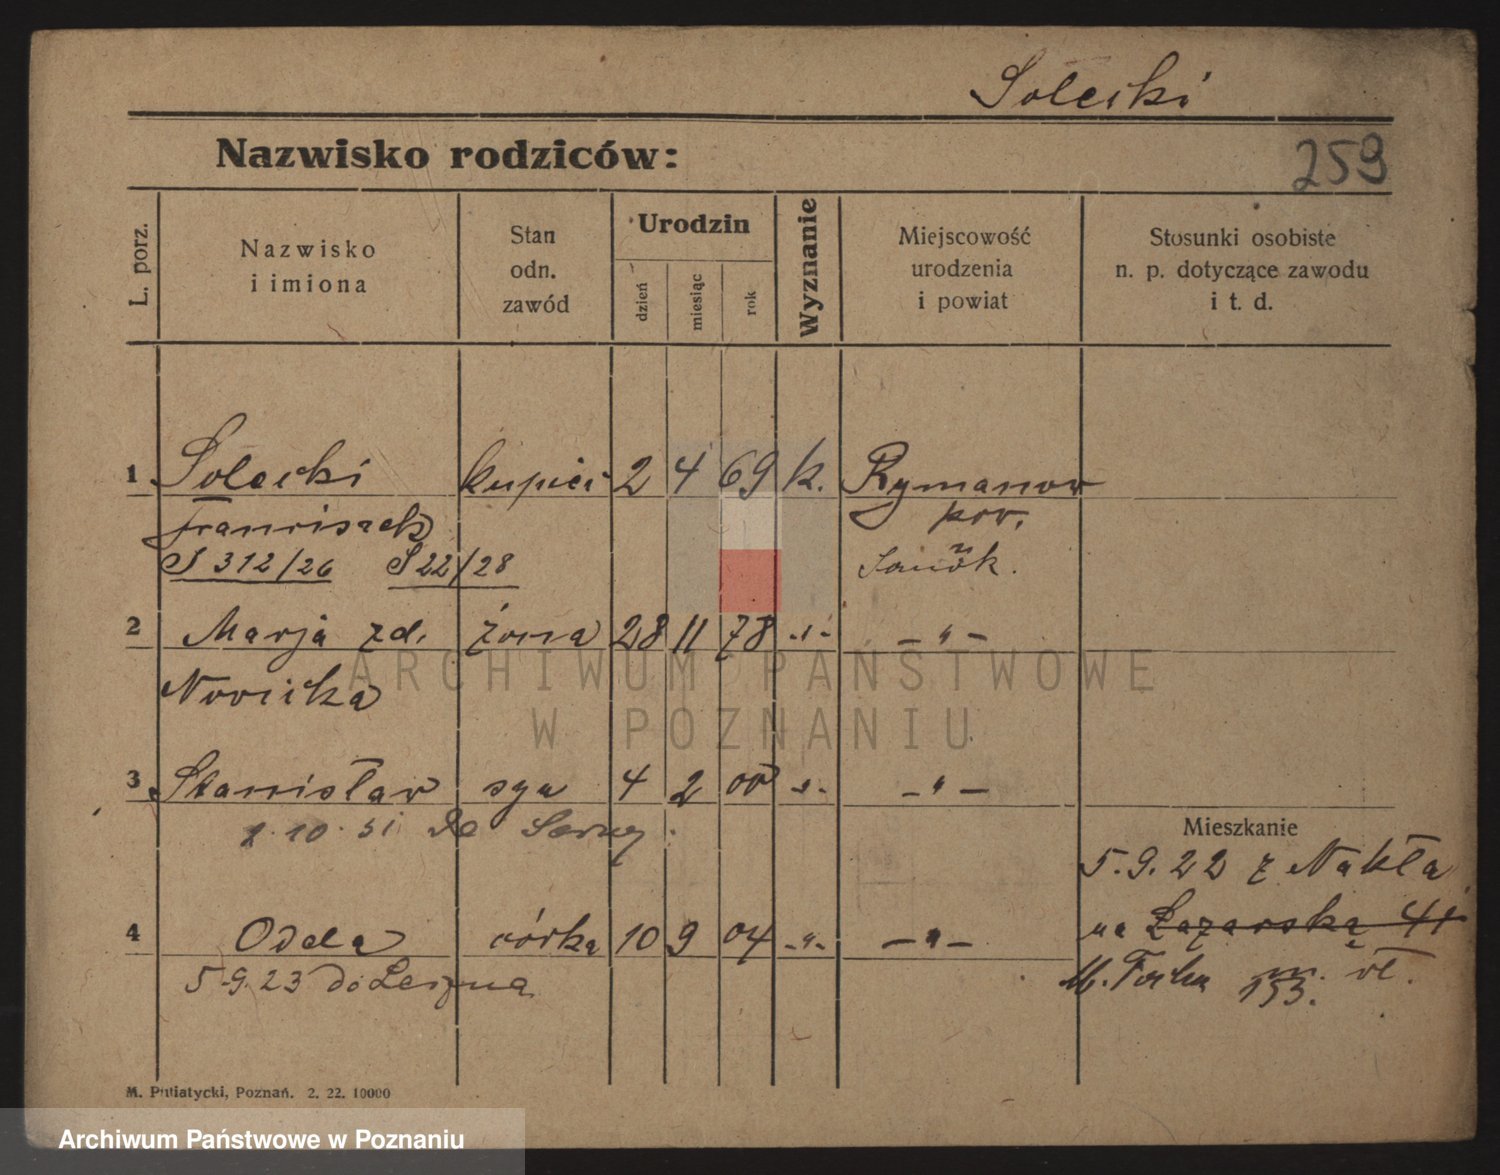 Solecki
Nazwisko rodziców:
259
L. porz.
Nazwisko
i imiona
Stan
odn.
zawód
Urodzin
dzień
miesiąc
rok
Wyznanie
Miejscowość
urodzenia
i powiat
Stosunki osobiste
n. p. dotyczące zawodu
i t. d.
1 Solecki kupiec 2 4 69 k. Rymanow
Franciszek pow.
S 312/26 S 22/28 Sanok.
2 Marja zd. żona 28 11 78 -"- -"-
Nowicka
3 Stanisław syn 4 2 00 -"- -"-
1.10.31 do Sarny.
Mieszkanie
5.9.22 z Nakła
4 Odela córka 10 9 04 -"- -"- na Łazarską 41
5.9.23 do Leszna M. Focha 153. m. vl.
M. Putiatycki, Poznań. 2. 22. 10000
ARCHIWUM PAŃSTWOWE
W POZNANIU
Archiwum Państwowe w Poznaniu